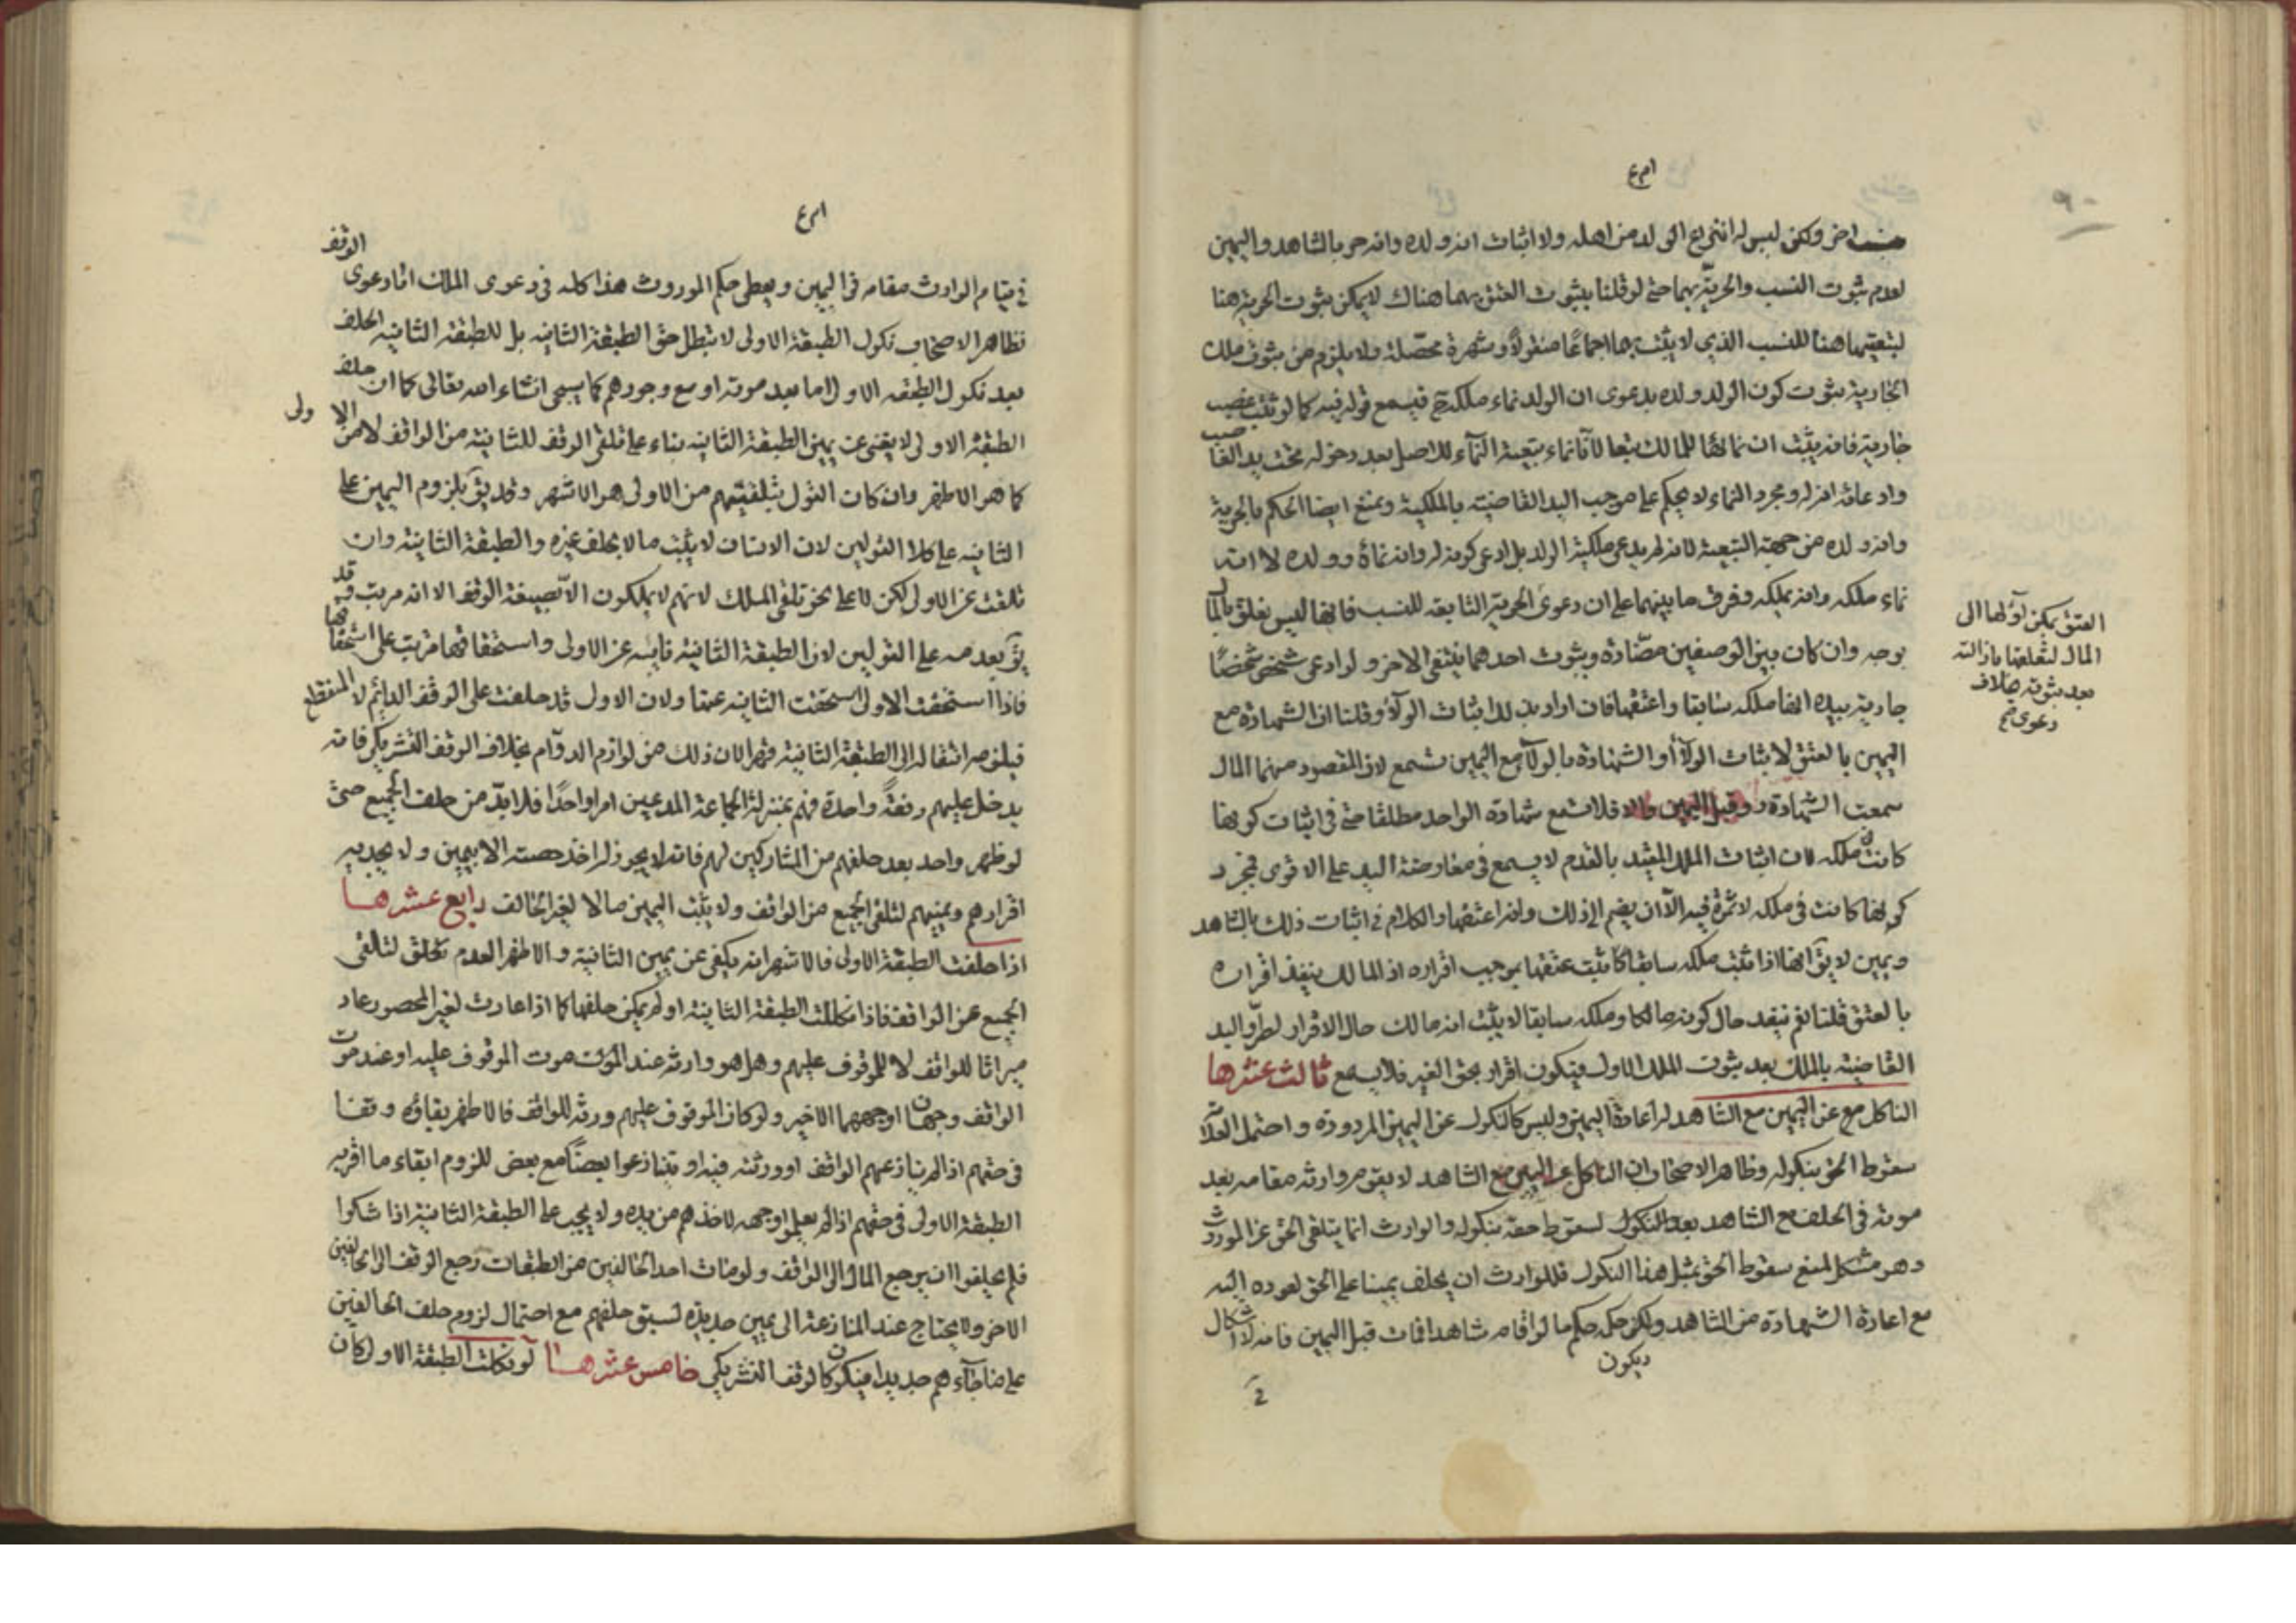 ٩٠
ولكن ليس له انتزاع الولد من اهله ولا اثبات انه ولده وانه حر بالشاهد واليمين
لعدم ثبوت النسب والحرية بهما حتى لو قلنا بثبوت العتق بهما هناك لا يمكن ثبوت الحرية هنا
لتبعيتها هنا للنسب الذي لا يثبت بهما اجماعًا منقولًا وشهرة محصلة ولا يلزم من ثبوت ملك
الجارية ثبوت كون الولد ولده بدعوى ان الولد نماء ملكه فيسمع قوله فيه كما لو ثبت غصب
جارية فانه يثبت ان نمائها للمالك تبعا لانا نماء بتبعية النماء للاصل بعد دخوله تحت يد الغاصب
وادعائه انه له ومجرد النماء لا يحكم على موجب اليد القاضية بالملكية ويمنع ايضا الحكم بالحرية
وانه ولده من جهة التبعية لانه لم يدعى ملكية الولد بل ادعى كونه له وانه نماؤه وولده لا انه
نماء ملكه وانه يملكه وفرق ما بينهما على ان دعوى الحرية التابعة للنسب فانها ليس تعلق بالمال
بوجه وان كان بين الوصفين مضادة وبثوت احدهما ينتفى الاخر ولو ادعى شخص شخصًا
جارية بيده انها ملكه سابقا واعتقها فان اراد بذلك اثبات الولاء وقلنا ان الشهادة مع
اليمين بالعتق لاثبات الولاء او الشهادة بالولاء مع اليمين تسمع لان المقصود منهما المال
سمعت الشهادة وقبل اليمين والا فلا تسمع شهادة الواحد مطلقا حتى في اثبات كونها
كانت ملكه لان اثبات الملك المقيد بالقدم لا يسمع في معارضة اليد على الاقوى فمجرد
كونها كانت في ملكه لا ثمرة فيه الا ان يضم الى ذلك وانه اعتقها والكلام في اثبات ذلك بالشاهد
ويمين لا يق انها اذا ثبت ملكه سابقا كا ثبت عتقها بموجب اقراره اذ المالك ينفذ اقراره
بالعتق قلنا نعم ينفذ حال كونه مالكا وملكه سابقا لا يثبت انه مالك حال الاقرار لطرو اليد
القاضية بالملك بعد ثبوت الملك الاول فيكون اقرار بحق الغير فلا يسمع ثالث عشرها
الناكل مع عن اليمين مع الشاهد له اعادة اليمين وليس كالنكول عن اليمين المردودة واحتمل العلامة
سقوط الحق بنكوله وظاهر الاصحاب ان الناكل عن اليمين مع الشاهد لا يقوم وارثه مقامه بعد
موته في الحلف مع الشاهد بعد النكول لسقوط حقه بنكوله والوارث انما يتلقى الحق عن المورث
وهو مشكل لمنع سقوط الحق بمثل هذا النكول فللوارث ان يحلف يمينا على الحق لعوده اليه
مع اعادة الشهادة من الشاهد ولكن حكمه حكم ما لو اقام شاهدا فمات قبل اليمين فانه لا اشكال
ويكون
العتق يمكن اولها الى
المال لتعلقها بازالته
بعد ثبوته خلاف
دعوى
في قيام الوارث مقامه في اليمين ويعطى حكم الموروث هذا كله في دعوى الملك اما دعوى الوقف
فظاهر الاصحاب نكول الطبقة الاولى لا تبطل حق الطبقة الثانيه بل للطبقة الثانيه الحلف
بعد نكول الطبقه الاولى اما بعد موته او مع وجودهم كما يسجى انشاء الله تعالى كما ان حلف
الطبقة الاولى لا يغنى عن يمين الطبقة الثانيه بناء على تلقى الوقف للثانية من الواقف لا من الاولى
كما هو الاظهر وان كان القول بتلقيتهم من الاولى هو الاشهر وقد يق بلزوم اليمين على
الثانيه على كلا القولين لان الانسان لا يثبت ما لا يحلف غيره والطبقة الثانية وان
تلقت عن الاولى لكن لا على نحو تلقى الملك لانهم لا يملكون الا بصيغة الوقف الا انه مرتب وقد
يق بعدمه على القولين لان الطبقة الثانية نايبه عن الاولى واستحقاقها مرتب على استحقاقها
فاذا استحقت الاولى استحقت الثانيه عنها ولان الاول قد حلفت على الوقف الدائم لا المنقطع
فيلزمه انتقاله الى الطبقة الثانية قهرا لان ذلك من لوازم الدوام بخلاف الوقف التشريكي فانه
يدخل عليهم دفعةً واحدة فهم بمنزلة الجماعة المدعين امرا واحدًا فلا بد من حلف الجميع حتى
لو ظهر واحد بعد حلفهم من المشاركين لهم فانه لا يجوز له اخذ حصته الا بيمين ولا يجديه
اقرارهم ويمينهم لتلقى الجميع من الواقف ولا يثبت اليمين مالا لغير الحالف رابع عشرها
اذا حلفت الطبقة الاولى فالاشهر انه يكفى عن يمين الثانية والاظهر العدم تحلق لتلقى
الجميع عن الواقف فاذا نكلت الطبقة الثانية او لم يمكن حلفها كما اذا عادت لغير المحصور عاد
ميراثا للواقف لا للموقوف عليهم وهل هو وارثه عند الموت موت الموقوف عليه او عند موت
الواقف وجهان اوجههما الاخير ولو كان الموقوف عليهم ورثه للواقف فالاظهر بقاؤه وقفا
في حقهم اذا لم ينازعهم الواقف او ورثته فيه او يتنازعوا بعضًا مع بعض للزوم ابقاء ما اقر به
الطبقة الاولى في حقهم اذا لم يعلموا وجهه لاخذهم من يده ولا يجب على الطبقة الثانية اذا شكوا
فلم يحلفوا ان يرجع المال الى الواقف ولو مات احد الحالفين من الطبقات رجع الوقف الى الحالفين
الاخر ولا يحتاج عند المنازعة الى يمين جديدة لسبق حلفهم مع احتمال لزوم حلف الحالفين
على ما جاءهم جديدا فيكون كالوقف التشريكي خامس عشرها لو نكلت الطبقة الاولى كان